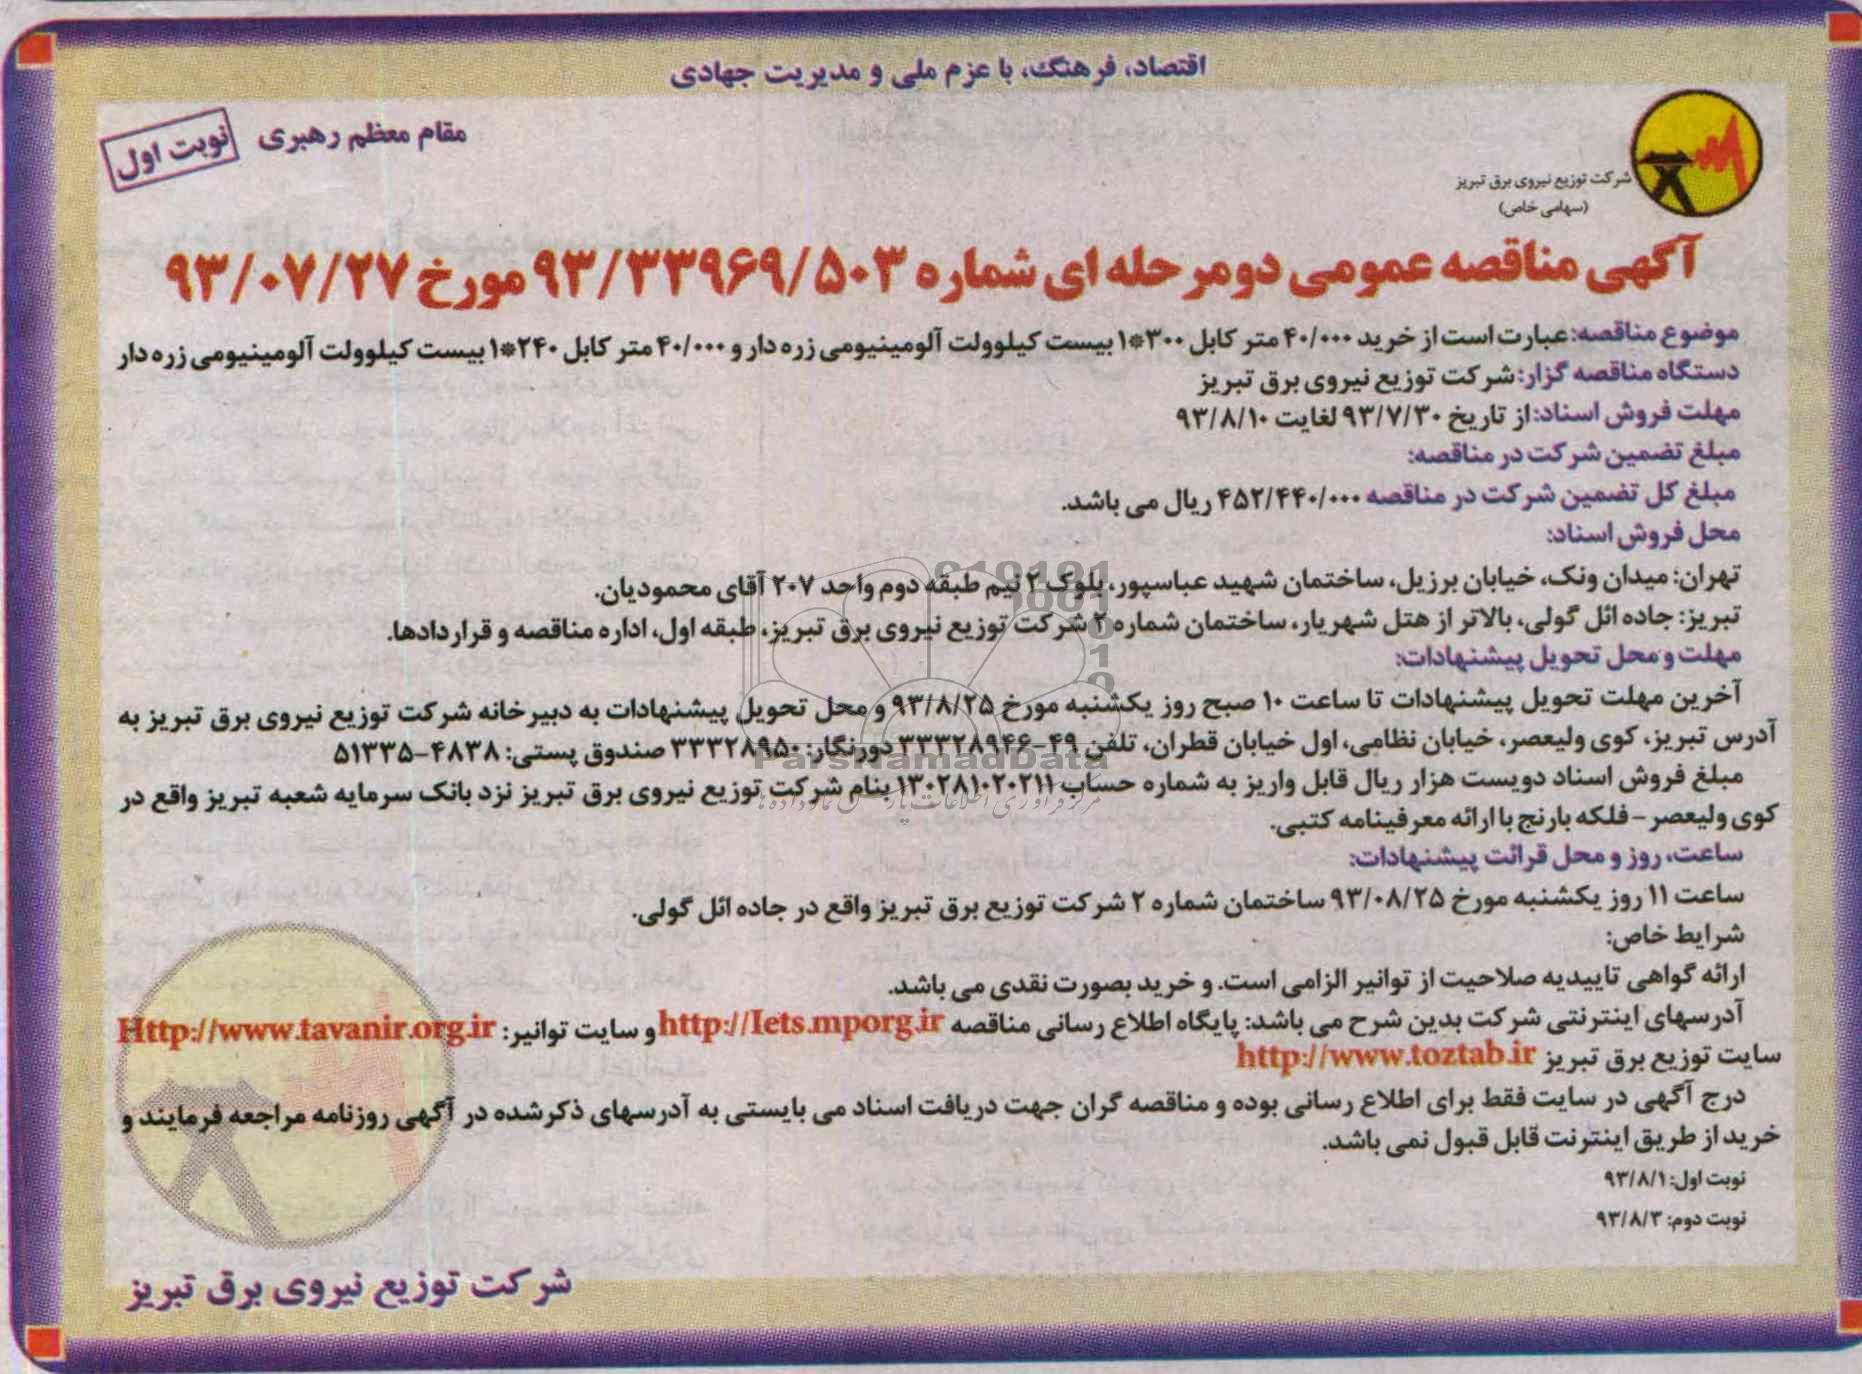 اقتصاد، فرهنگ، با عزم ملی و مدیریت جهادی
مقام معظم رهبری
نوبت اول
شرکت توزیع نیروی برق تبریز
(سهامی خاص)
آگهی مناقصه عمومی دومرحله ای شماره ۹۳/۳۳۹۶۹/۵۰۳ مورخ ۹۳/۰۷/۲۷
موضوع مناقصه: عبارت است از خرید ۴۰/۰۰۰ متر کابل ۳۰۰*۱ بیست کیلوولت آلومینیومی زره دار و ۴۰/۰۰۰ متر کابل ۲۴۰*۱ بیست کیلوولت آلومینیومی زره دار
دستگاه مناقصه گزار: شرکت توزیع نیروی برق تبریز
مهلت فروش اسناد: از تاریخ ۹۳/۷/۳۰ لغایت ۹۳/۸/۱۰
مبلغ تضمین شرکت در مناقصه:
مبلغ کل تضمین شرکت در مناقصه ۴۵۲/۴۴۰/۰۰۰ ریال می باشد.
محل فروش اسناد:
تهران: میدان ونک، خیابان برزیل، ساختمان شهید عباسپور، بلوک ۲ نیم طبقه دوم واحد ۲۰۷ آقای محمودیان.
تبریز: جاده ائل گولی، بالاتر از هتل شهریار، ساختمان شماره ۲ شرکت توزیع نیروی برق تبریز، طبقه اول، اداره مناقصه و قراردادها.
مهلت و محل تحویل پیشنهادات:
آخرین مهلت تحویل پیشنهادات تا ساعت ۱۰ صبح روز یکشنبه مورخ ۹۳/۸/۲۵ و محل تحویل پیشنهادات به دبیرخانه شرکت توزیع نیروی برق تبریز به
آدرس تبریز، کوی ولیعصر، خیابان نظامی، اول خیابان قطران، تلفن ۴۹-۳۳۳۲۸۹۴۶ دورنگار: ۳۳۳۲۸۹۵۰ صندوق پستی: ۴۸۳۸-۵۱۳۳۵
مبلغ فروش اسناد دویست هزار ریال قابل واریز به شماره حساب ۱۳۰۲۸۱۰۲۰۲۱۱ بنام شرکت توزیع نیروی برق تبریز نزد بانک سرمایه شعبه تبریز واقع در
کوی ولیعصر - فلکه بارنج با ارائه معرفینامه کتبی.
ساعت، روز و محل قرائت پیشنهادات:
ساعت ۱۱ روز یکشنبه مورخ ۹۳/۰۸/۲۵ ساختمان شماره ۲ شرکت توزیع برق تبریز واقع در جاده ائل گولی.
شرایط خاص:
ارائه گواهی تاییدیه صلاحیت از توانیر الزامی است. و خرید بصورت نقدی می باشد.
آدرسهای اینترنتی شرکت بدین شرح می باشد: پایگاه اطلاع رسانی مناقصه http://Iets.mporg.ir و سایت توانیر: Http://www.tavanir.org.ir
سایت توزیع برق تبریز http://www.toztab.ir
درج آگهی در سایت فقط برای اطلاع رسانی بوده و مناقصه گران جهت دریافت اسناد می بایستی به آدرسهای ذکرشده در آگهی روزنامه مراجعه فرمایند و
خرید از طریق اینترنت قابل قبول نمی باشد.
نوبت اول: ۹۳/۸/۱
نوبت دوم: ۹۳/۸/۳
شرکت توزیع نیروی برق تبریز
ParsNamadData